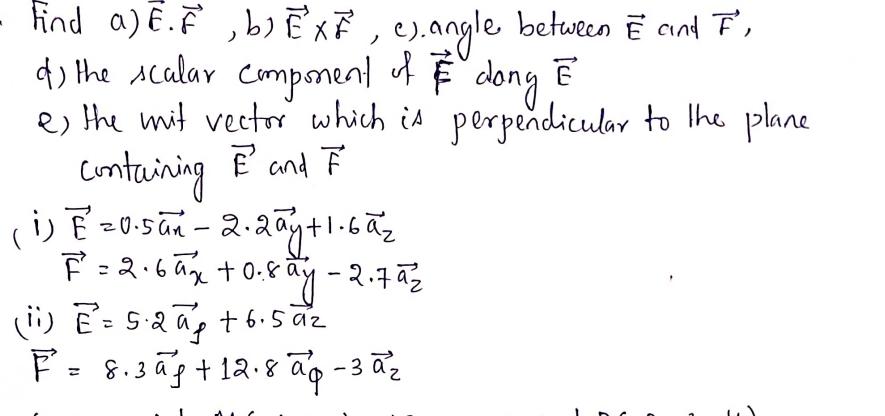 Find a) E⃗.F⃗ , b) E⃗ x F⃗ , c). angle between E⃗ and F⃗,
d) the scalar component of F⃗ along E⃗
e) the unit vector which is perpendicular to the plane
containing E⃗ and F⃗
(i) E⃗ = 0.5 a⃗x - 2.2 a⃗y + 1.6 a⃗z
F⃗ = 2.6 a⃗x + 0.8 a⃗y - 2.7 a⃗z
(ii) E⃗ = 5.2 a⃗ρ + 6.5 a⃗z
F⃗ = 8.3 a⃗ρ + 12.8 a⃗φ - 3 a⃗z